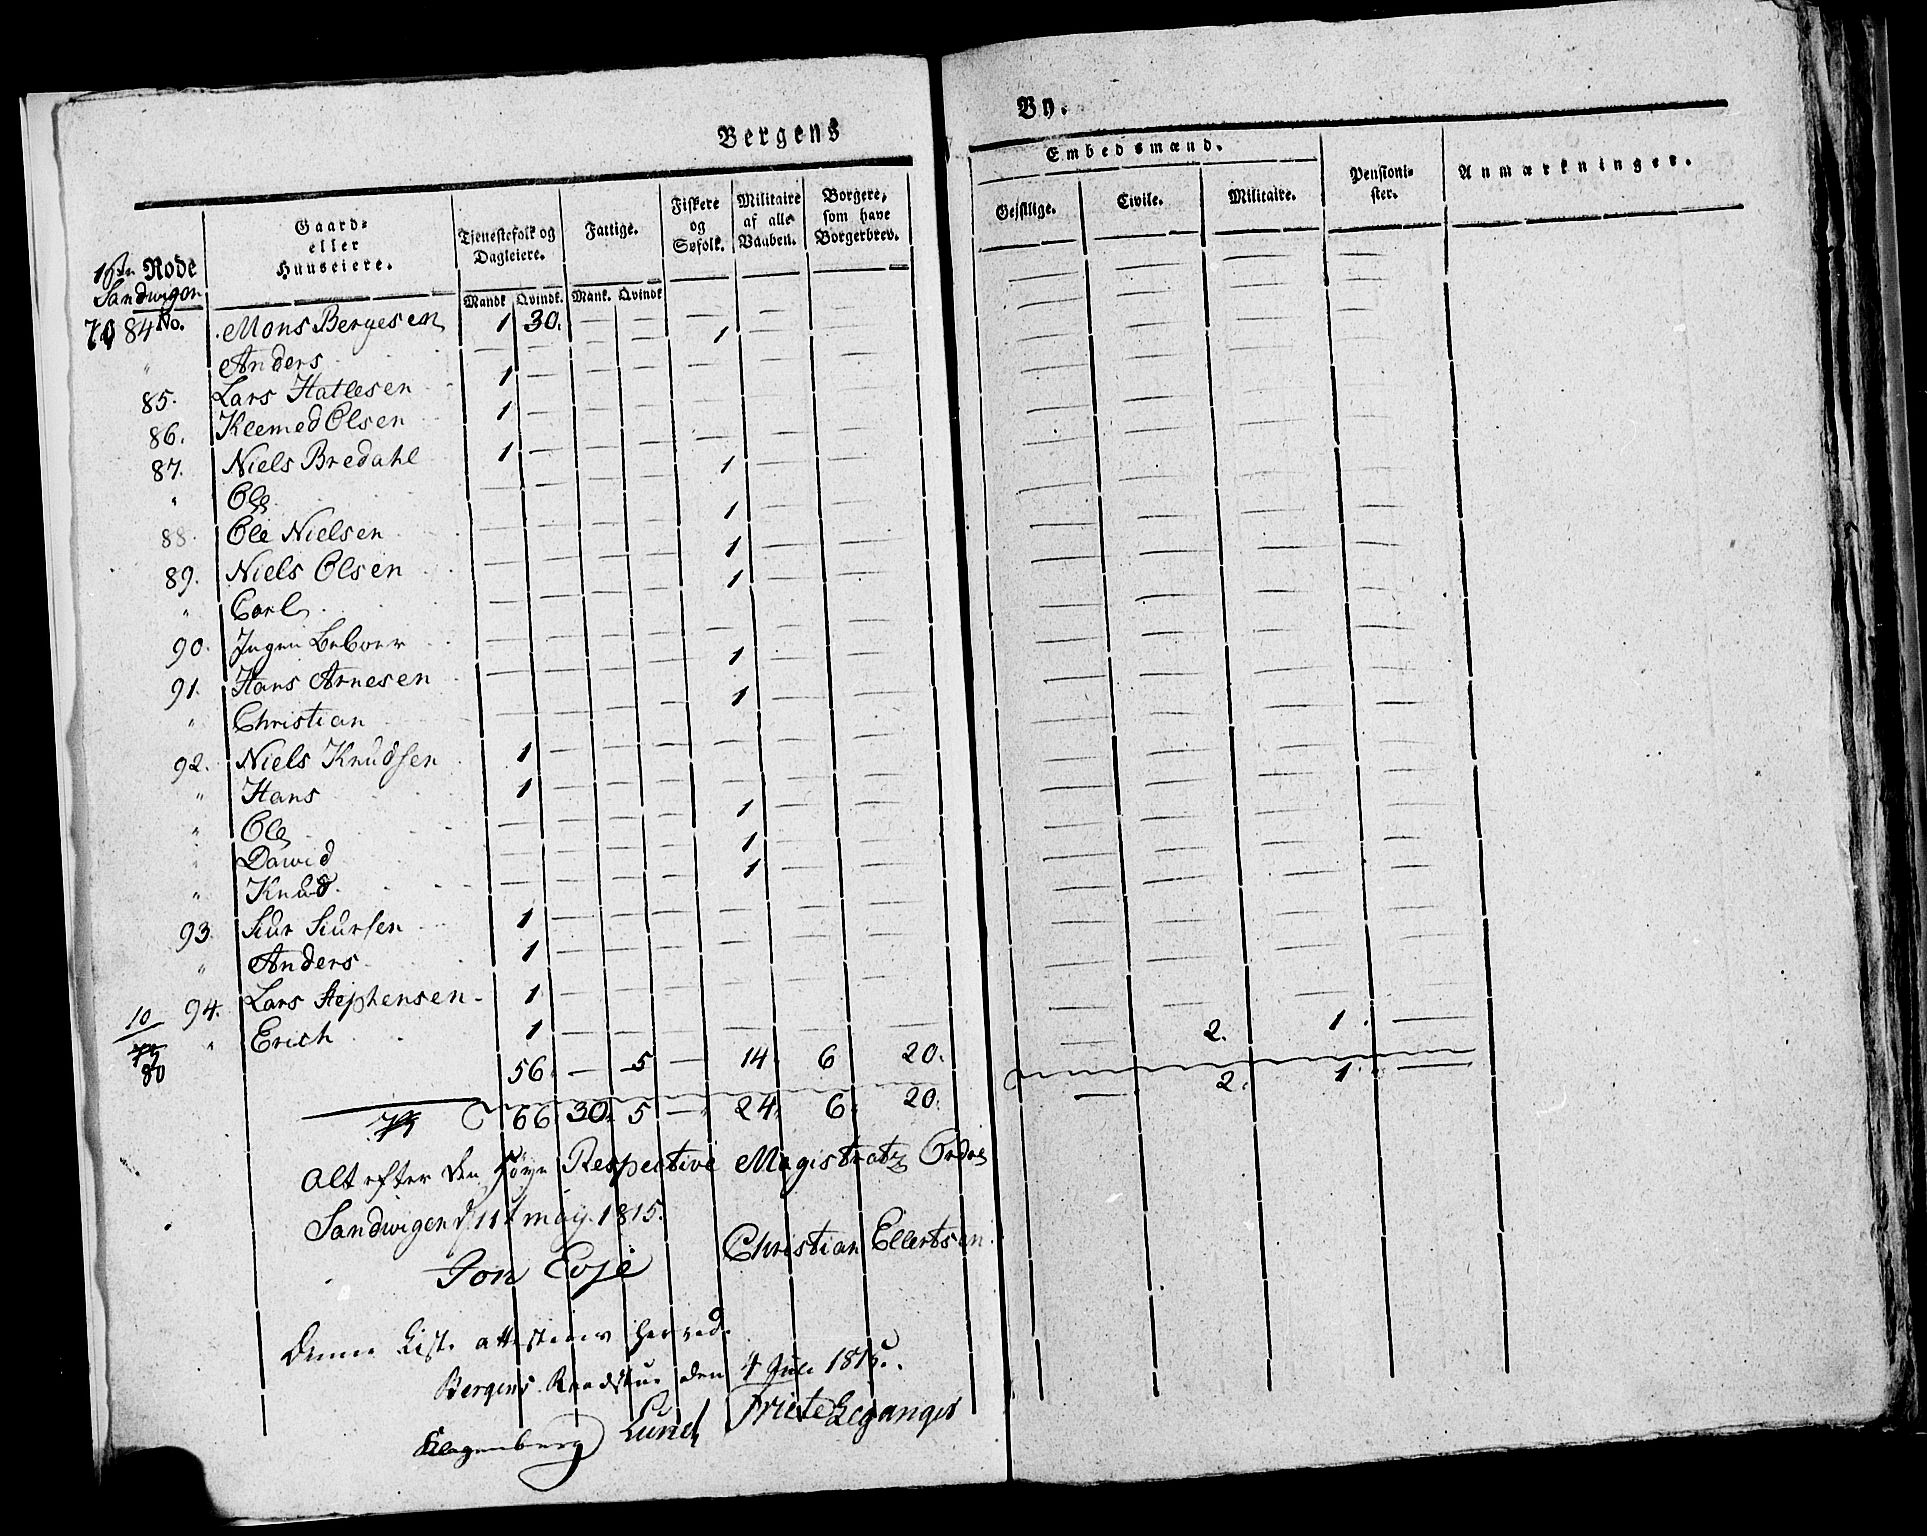 Bergens By.
16de Rode
Sandwigen
No.
Gaard- eller Huuseiere.
Tjenestefolk og Dagleiere.
Mandk. Qvindk.
Fattige.
Mank. Qvindk.
Fiskere og Søfolk.
Militaire af alle Vaaben.
Borgere, som have Borgerbrev.
Embedsmænd.
Geistlige. Civile. Militaire.
Pensionister.
Anmærkninger.
84 Mons Bergesen 1 30. — — — — —
" Anders — — — — 1 — —
85. Lars Hatlesen 1 — — — — — —
86. Kleemed Olsen 1 — — — — — —
87. Niels Bredahl 1 — — — — — —
" Ole — — — — 1 — —
88. Ole Nielsen — — — — 1 — —
89. Niels Olsen — — — — 1 — —
" Carl — — — — 1 — —
90. Ingen Beboer — — — — — — —
91. Hans Arnesen — — — — 1 — —
" Christian — — — — 1 — —
92. Niels Knudsen 1 — — — — — —
" Hans 1 — — — — — —
" Ole — — — — 1 — —
" Dawid — — — — 1 — —
" Knud — — — — 1 — —
93. Siur Siursen 1 — — — — — —
" Anders 1 — — — — — —
94. Lars Stephensen 1 — — — — — —
" Erich 1 — — — — — —
10
80
56. — 5 — 14. 6 20. 2. 1. —
66 30. 5 — 24. 6. 20. — 2. 1. —
Alt efter den Respective Magistratz Ordre
Sandwigen d 11t maij 1815.
Jon Evje Christian Ellertsen
Denne Liste attesteres herved.
Bergens Raadstue den 4 Juli 1815.
Klagenberg Lund Friele